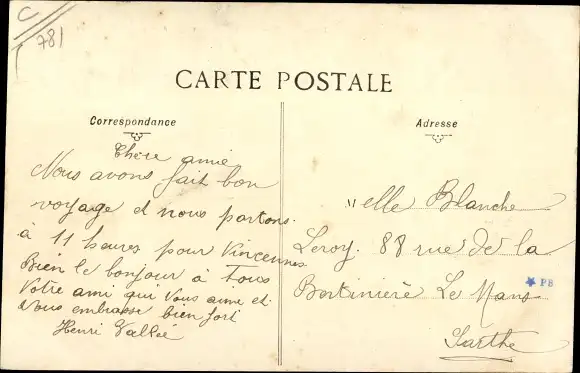 C
781
CARTE POSTALE
Correspondance
Chère amie
Nous avons fait bon
voyage et nous partons
à 11 heures pour Vincennes
Bien le bonjour à Tous
Votre ami qui Vous aime et
Vous embrasse bien fort
Henri Vallée
Adresse
Melle Blanche
Leroy. 88 rue de la
Bertinière Le Mans
Sarthe
PB